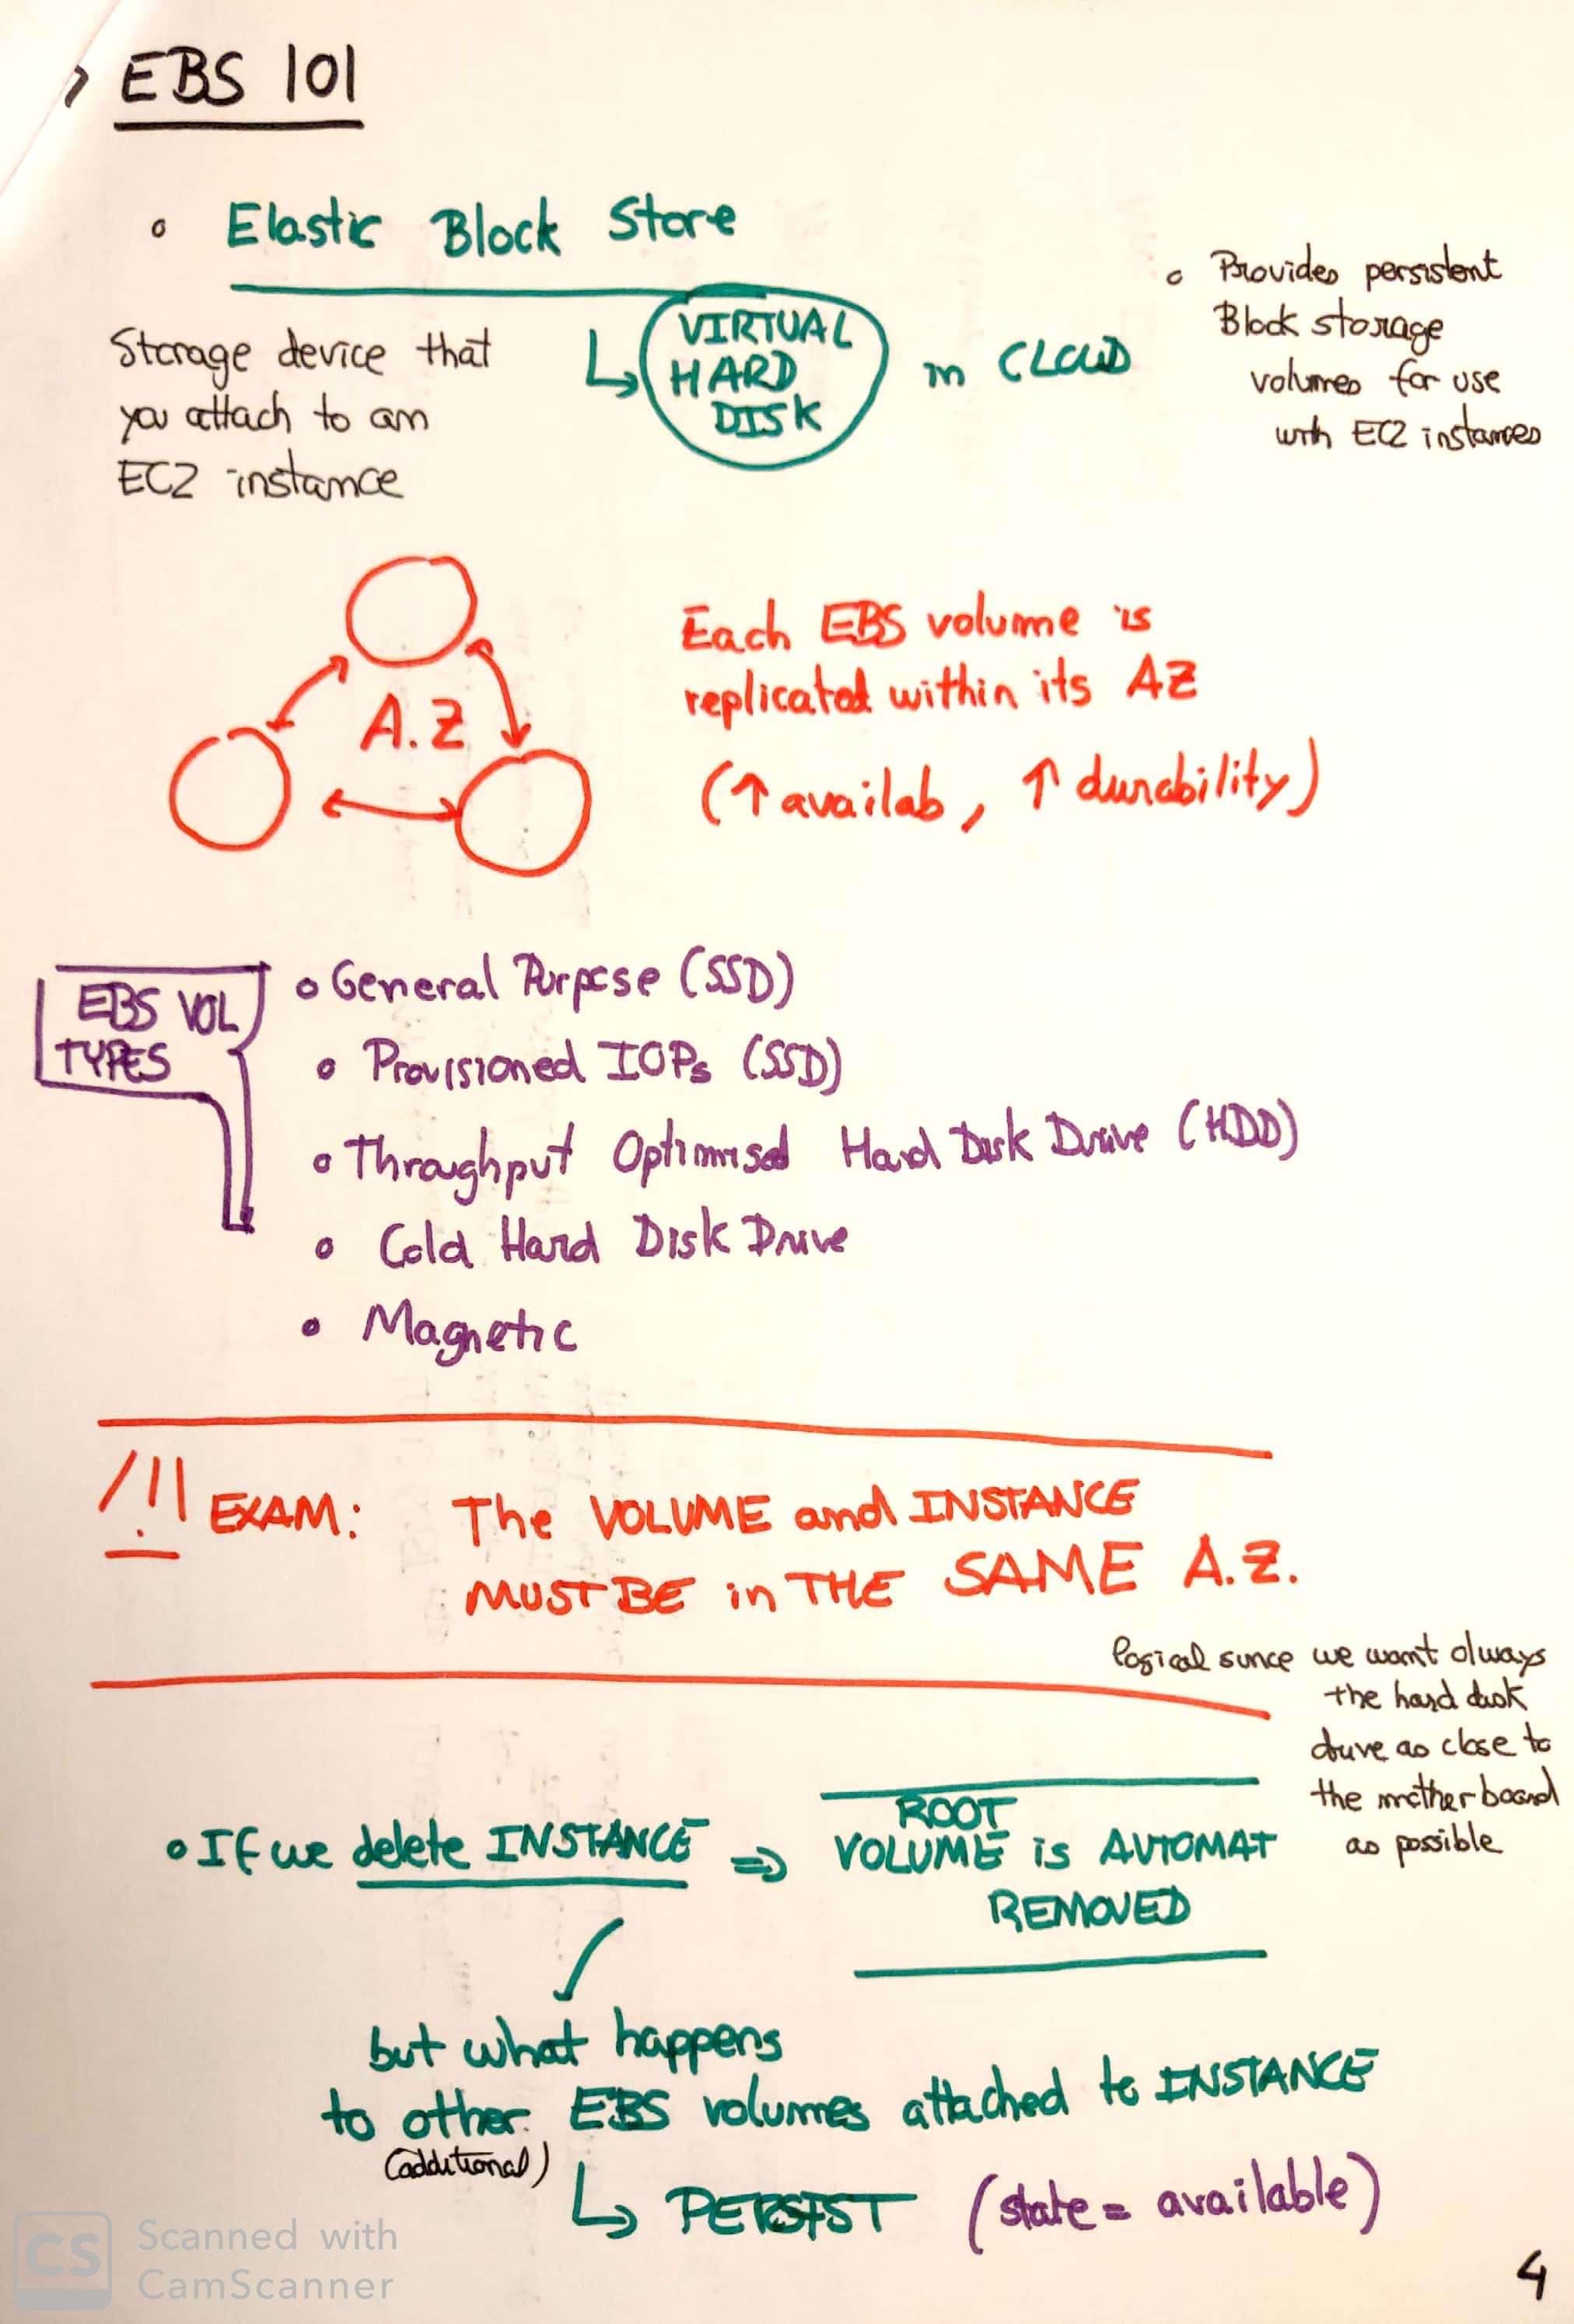 > EBS 101
o Elastic Block Store
Storage device that
you attach to an
EC2 instance
VIRTUAL
HARD
DISK
in CLOUD
o Provides persistent
Block storage
volumes for use
with EC2 instances
A.Z
Each EBS volume is
replicated within its AZ
(↑ availab, ↑ durability)
EBS VOL
TYPES
o General Purpose (SSD)
o Provisioned IOPs (SSD)
o Throughput Optimised Hard Disk Drive (HDD)
o Cold Hard Disk Drive
o Magnetic
/!\ EXAM: The VOLUME and INSTANCE
MUST BE in THE SAME A.Z.
logical since we want always
the hard disk
drive as close to
the motherboard
as possible
o If we delete INSTANCE => ROOT
VOLUME is AUTOMAT
REMOVED
but what happens
to other EBS volumes attached to INSTANCE
(additional)
↳ PERSIST (state = available)
CS Scanned with
CamScanner
4